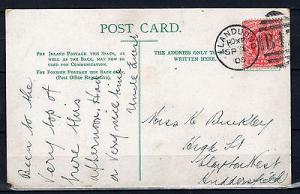 POST CARD.
FOR INLAND POSTAGE THE SPACE, AS
WELL AS THE BACK, MAY NOW BE
USED FOR COMMUNICATION.
FOR FOREIGN POSTAGE THE BACK ONLY.
(Post Office Regulation).
THE ADDRESS ONLY TO BE
WRITTEN HERE.
LLANDUDNO
SP
Been to the
very top of
here this
afternoon. Had
a very nice time
Uncle
Miss K Buckley
High St
Huddersfield